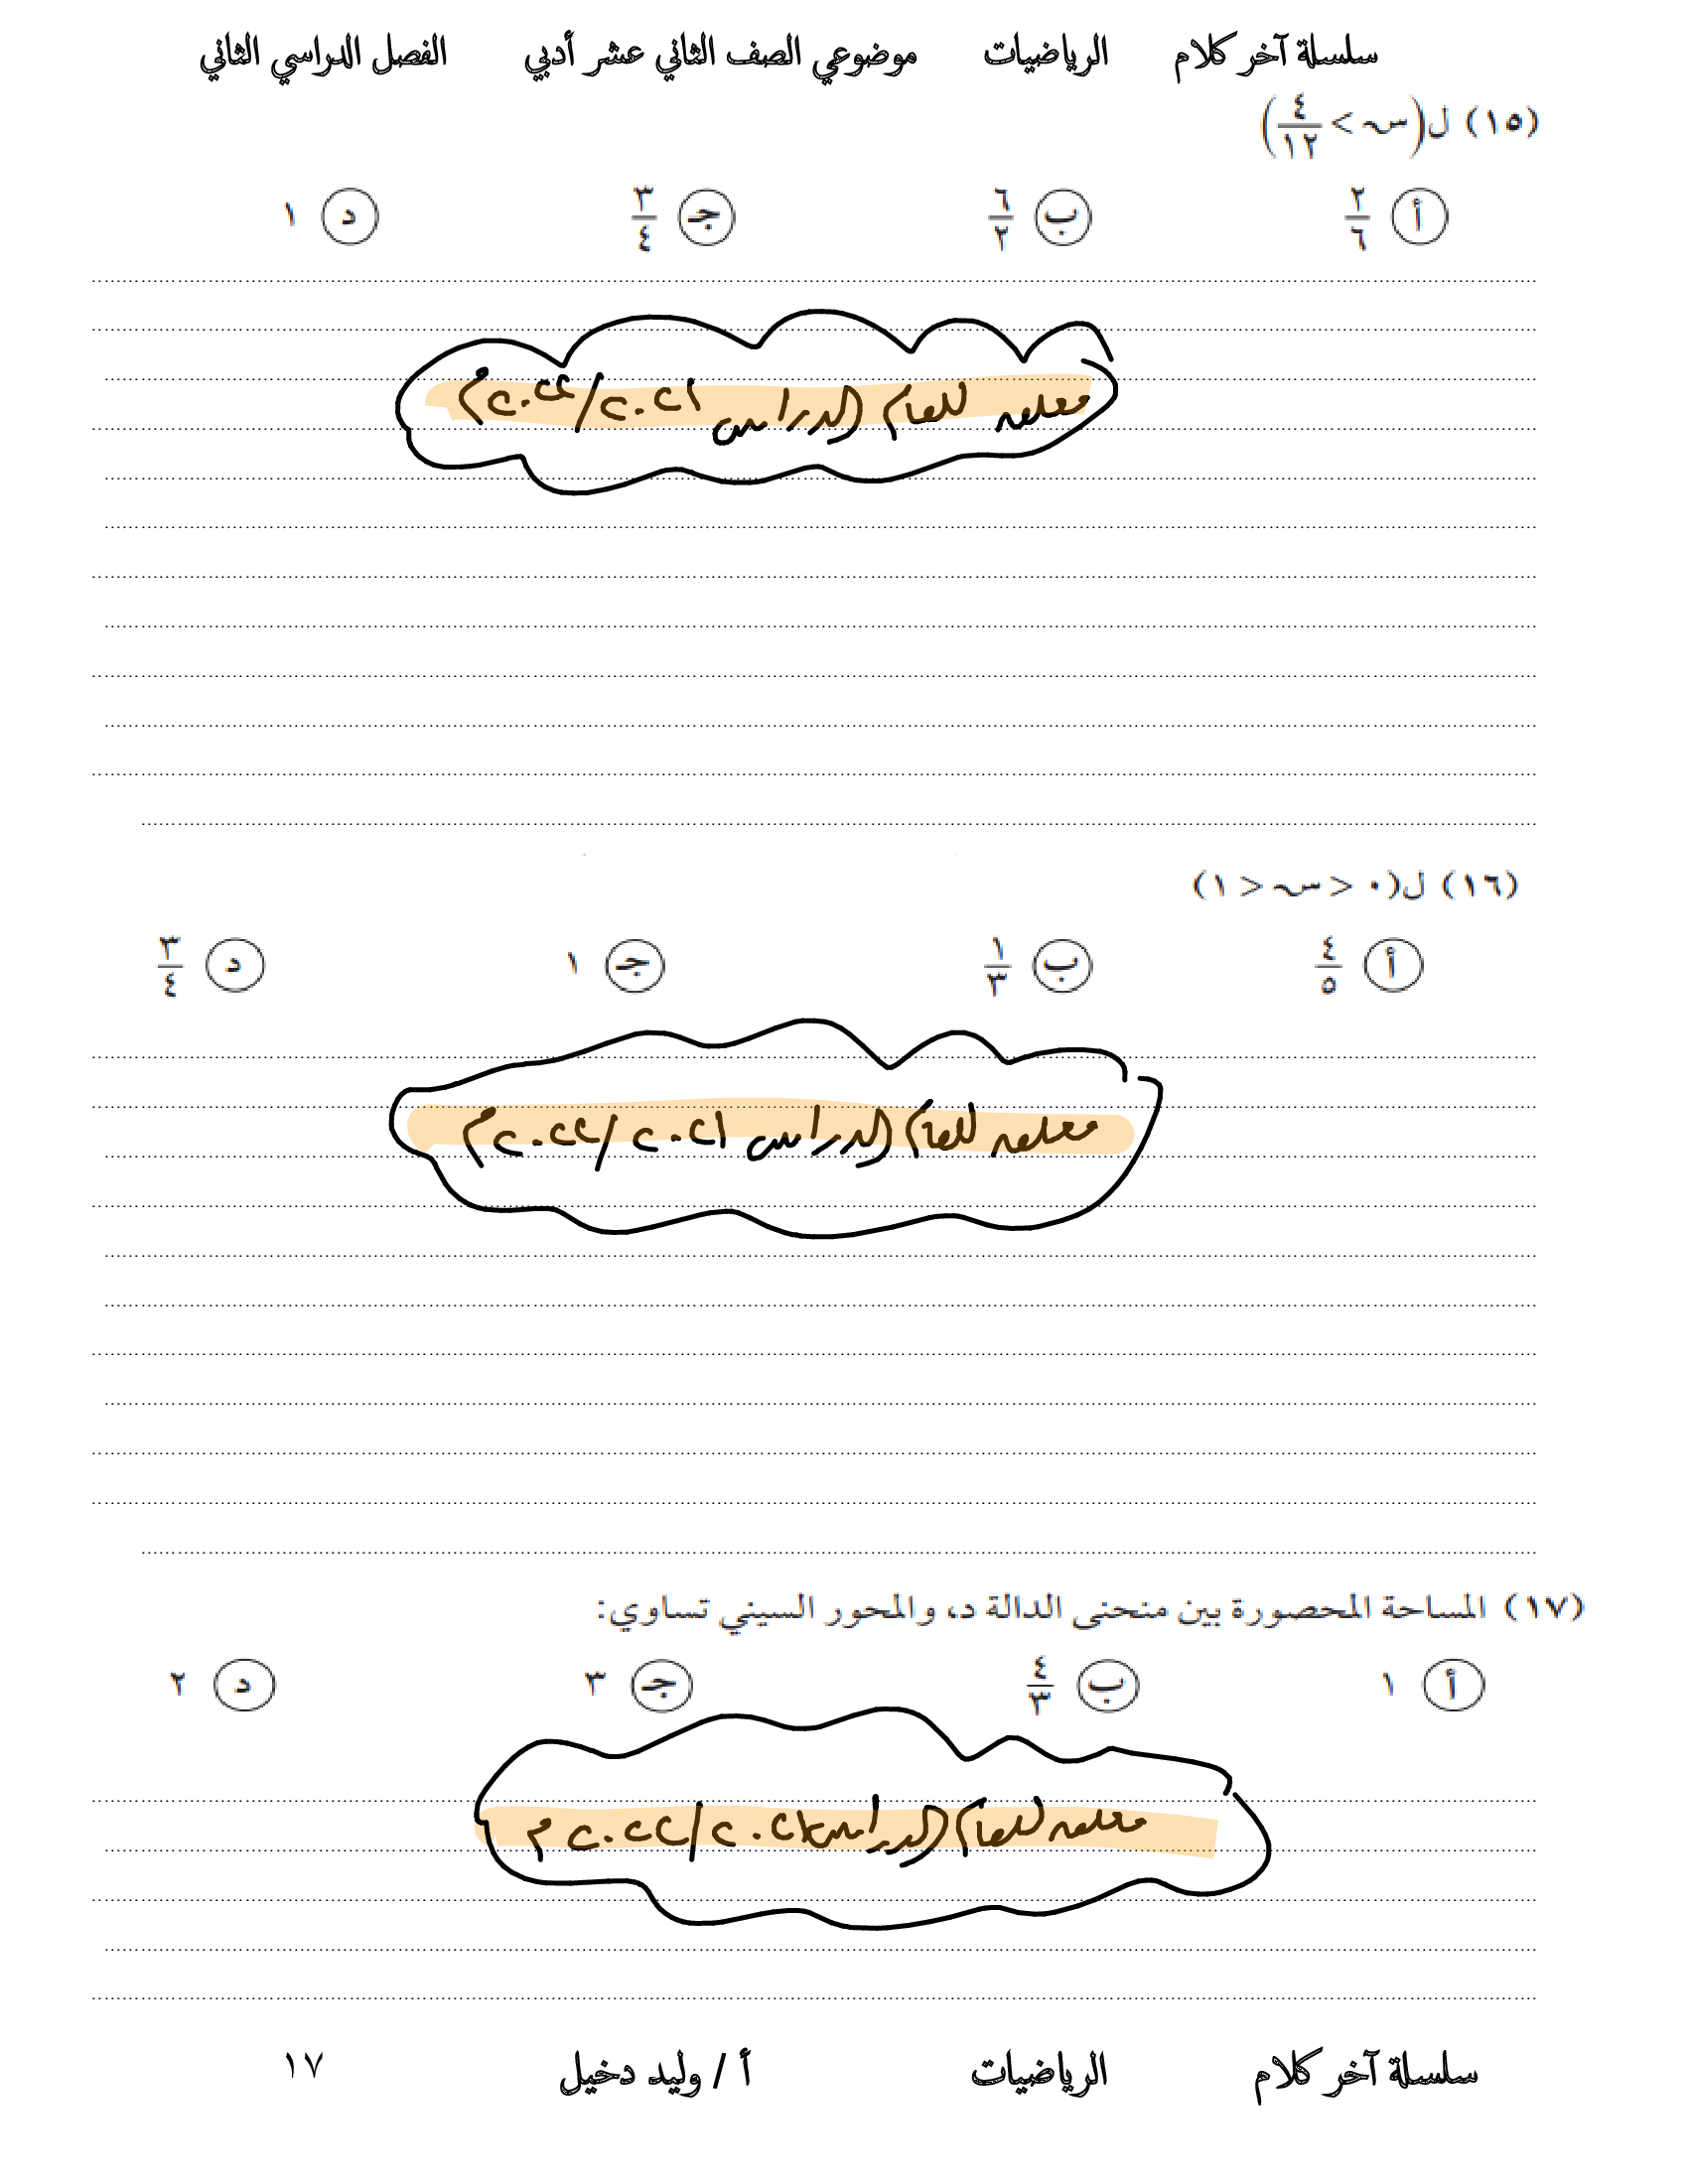 سلسلة آخر كلام الرياضيات موضوعي الصف الثاني عشر أدبي الفصل الدراسي الثاني
(١٥) ل(س > ٤/١٢)
أ ٢/٦ ب ٦/٢ جـ ٣/٤ د ١
معلمه للعام الدراسى ٢٠٢١/٢٠٢٢م
(١٦) ل(٠ < س < ١)
أ ٤/٥ ب ١/٣ جـ ١ د ٣/٤
معلمه للعام الدراسى ٢٠٢١/٢٠٢٢م
(١٧) المساحة المحصورة بين منحنى الدالة د، والمحور السيني تساوي:
أ ١ ب ٤/٣ جـ ٣ د ٢
معلمه للعام الدراسى ٢٠٢١/٢٠٢٢م
سلسلة آخر كلام الرياضيات أ / وليد دخيل ١٧